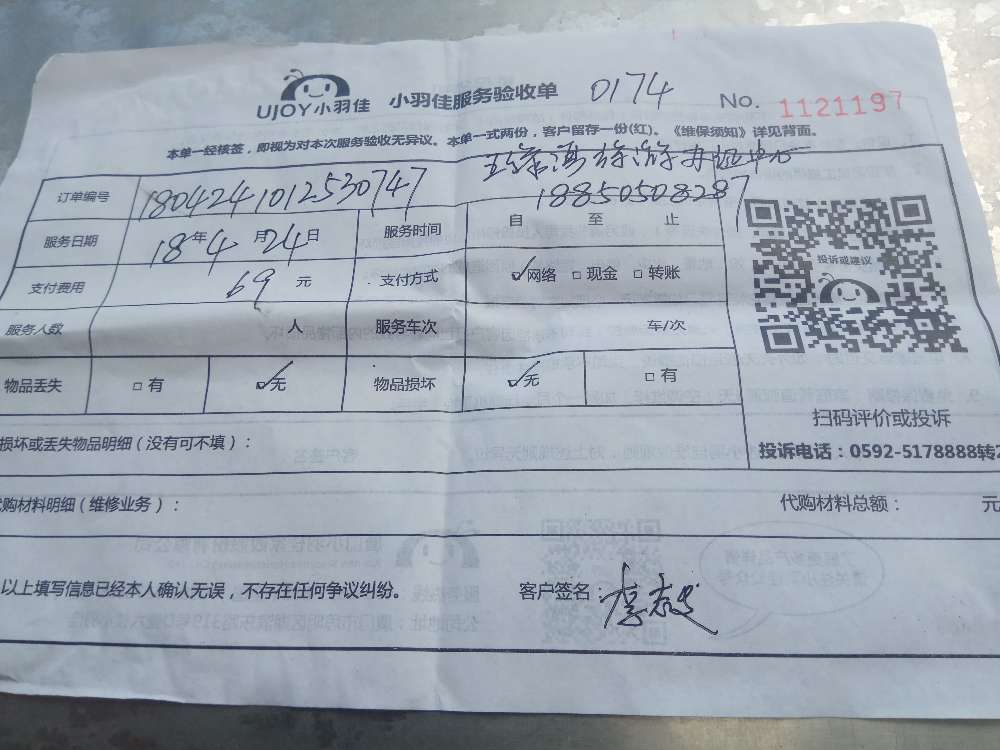 UJOY小羽佳 小羽佳服务验收单 0174 No. 1121197
本单一经核签，即视为对本次服务验收无异议。本单一式两份，客户留存一份(红)。《维保须知》详见背面。
订单编号 1804241012530747 18850508287
服务日期 18年4月24日 服务时间 自 至 止
支付费用 69元 支付方式 ✓网络 □现金 □转账
服务人数 人 服务车次 车/次
物品丢失 □有 ✓无 物品损坏 ✓无 □有
投诉或建议
扫码评价或投诉
投诉电话：0592-5178888转2
损坏或丢失物品明细（没有可不填）：
代购材料明细（维修业务）： 代购材料总额： 元
以上填写信息已经本人确认无误，不存在任何争议纠纷。 客户签名：